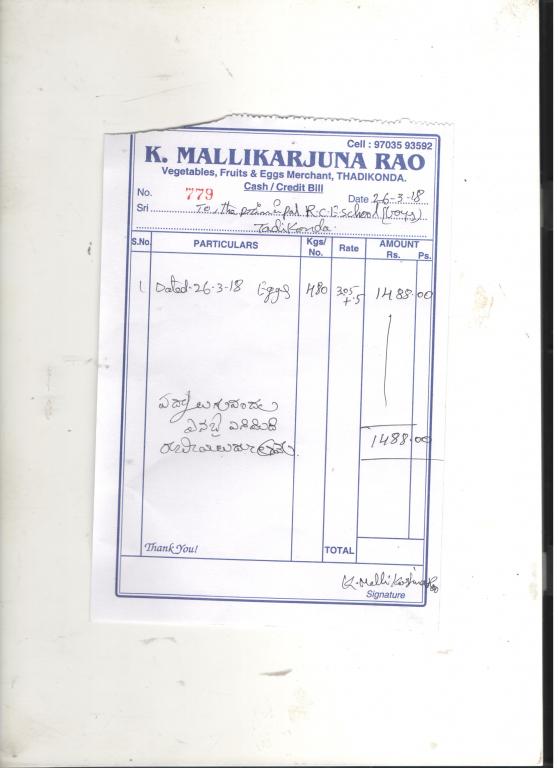 Cell : 97035 93592
K. MALLIKARJUNA RAO
Vegetables, Fruits & Eggs Merchant, THADIKONDA.
Cash / Credit Bill
No. 779 Date 26-3-18
Sri To, the principal R.C.E. school (boys)
Tadikonda.
S.No. PARTICULARS Kgs/No. Rate AMOUNT Rs. Ps.
1 Dated-26-3-18 Eggs 480 305 1488.00
+.5
1488.00
Thank You! TOTAL
Signature